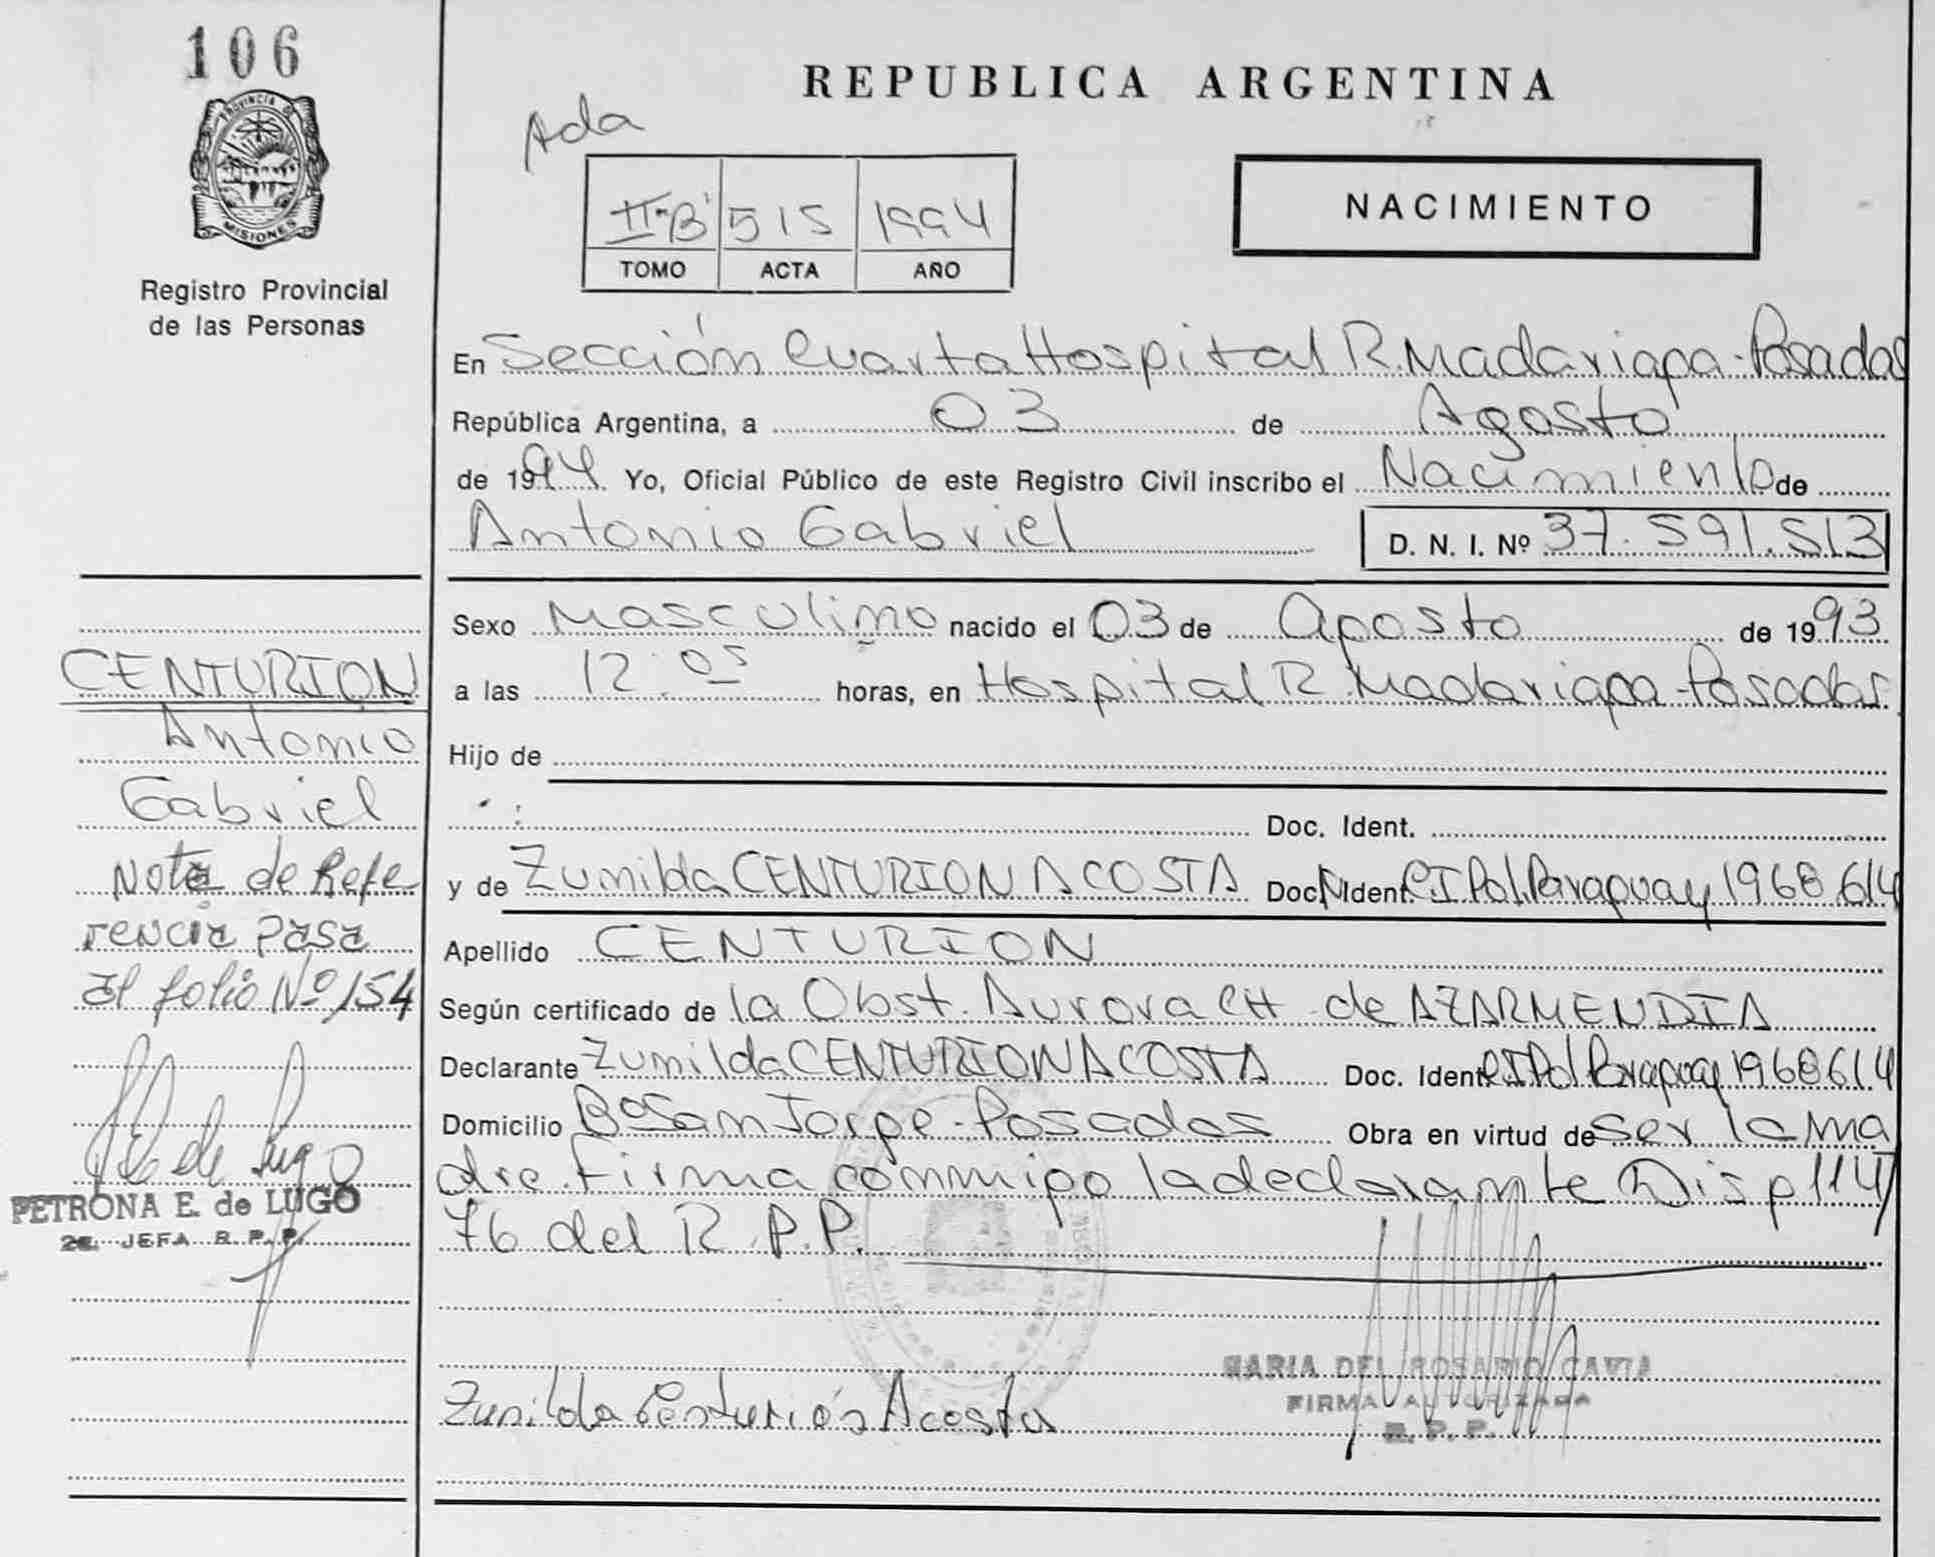 106
PROVINCIA DE
MISIONES
Registro Provincial
de las Personas
REPUBLICA ARGENTINA
Ada
II-B 515 1994
TOMO ACTA AÑO
NACIMIENTO
En Sección Cuarta Hospital R. Madariaga - Posadas
República Argentina, a 03 de Agosto
de 1994 Yo, Oficial Público de este Registro Civil inscribo el Nacimiento de
Antonio Gabriel D. N. I. Nº 37.591.513
Sexo Masculino nacido el 03 de Agosto de 1993
a las 12:05 horas, en Hospital R. Madariaga - Posadas
Hijo de
Doc. Ident.
y de Zunilda CENTURION ACOSTA Doc. Ident. CI Pol. Paraguay 1968614
Apellido CENTURION
Según certificado de la Obst. Aurora CH de AZARMENDIA
Declarante Zunilda CENTURION ACOSTA Doc. Ident. CI Pol Paraguay 1968614
Domicilio Bº San Jorge - Posadas Obra en virtud de ser la ma
dre. Firma conmigo la declarante Disp 114/
76 del R.P.P.
Zunilda Centurión Acosta
MARIA DEL ROSARIO CAVIA
FIRMA AUTORIZADA
R. P. P.
CENTURION
Antonio
Gabriel
Nota de Refe
rencia pasa
al folio Nº 154
PETRONA E. de LUGO
2a. JEFA R. P. P.